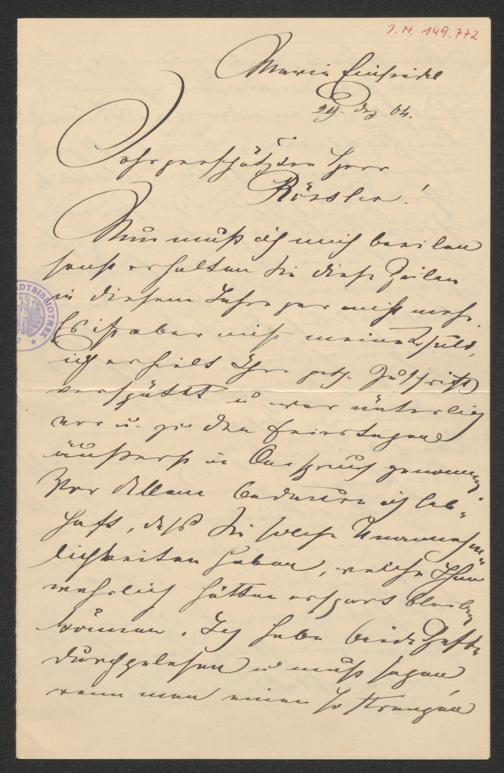 J.N. 149.772
Maria Einsiedel
29. Dez 04.
Sehr geschätzter Herr
Rössler!
Nun muß ich mich beeilen
sonst erhalten Sie diese Zeilen
in diesem Jahre gar nicht mehr.
Es ist aber nicht meine Schuld,
ich erhielt Ihre gesch. Zuschrift
verspätet u war
vor u. zu den Feiertagen
äußerst in Anspruch genommen.
Vor Allem bedauere ich leb-
haft, daß Sie solche Unannehm-
lichkeiten haben, welche Ihnen
wahrlich hätten erspart bleiben
können. Ich habe beide Hefte
durchgelesen u muß sagen
wenn man einen so strengen
STADTBIBLIOTHEK